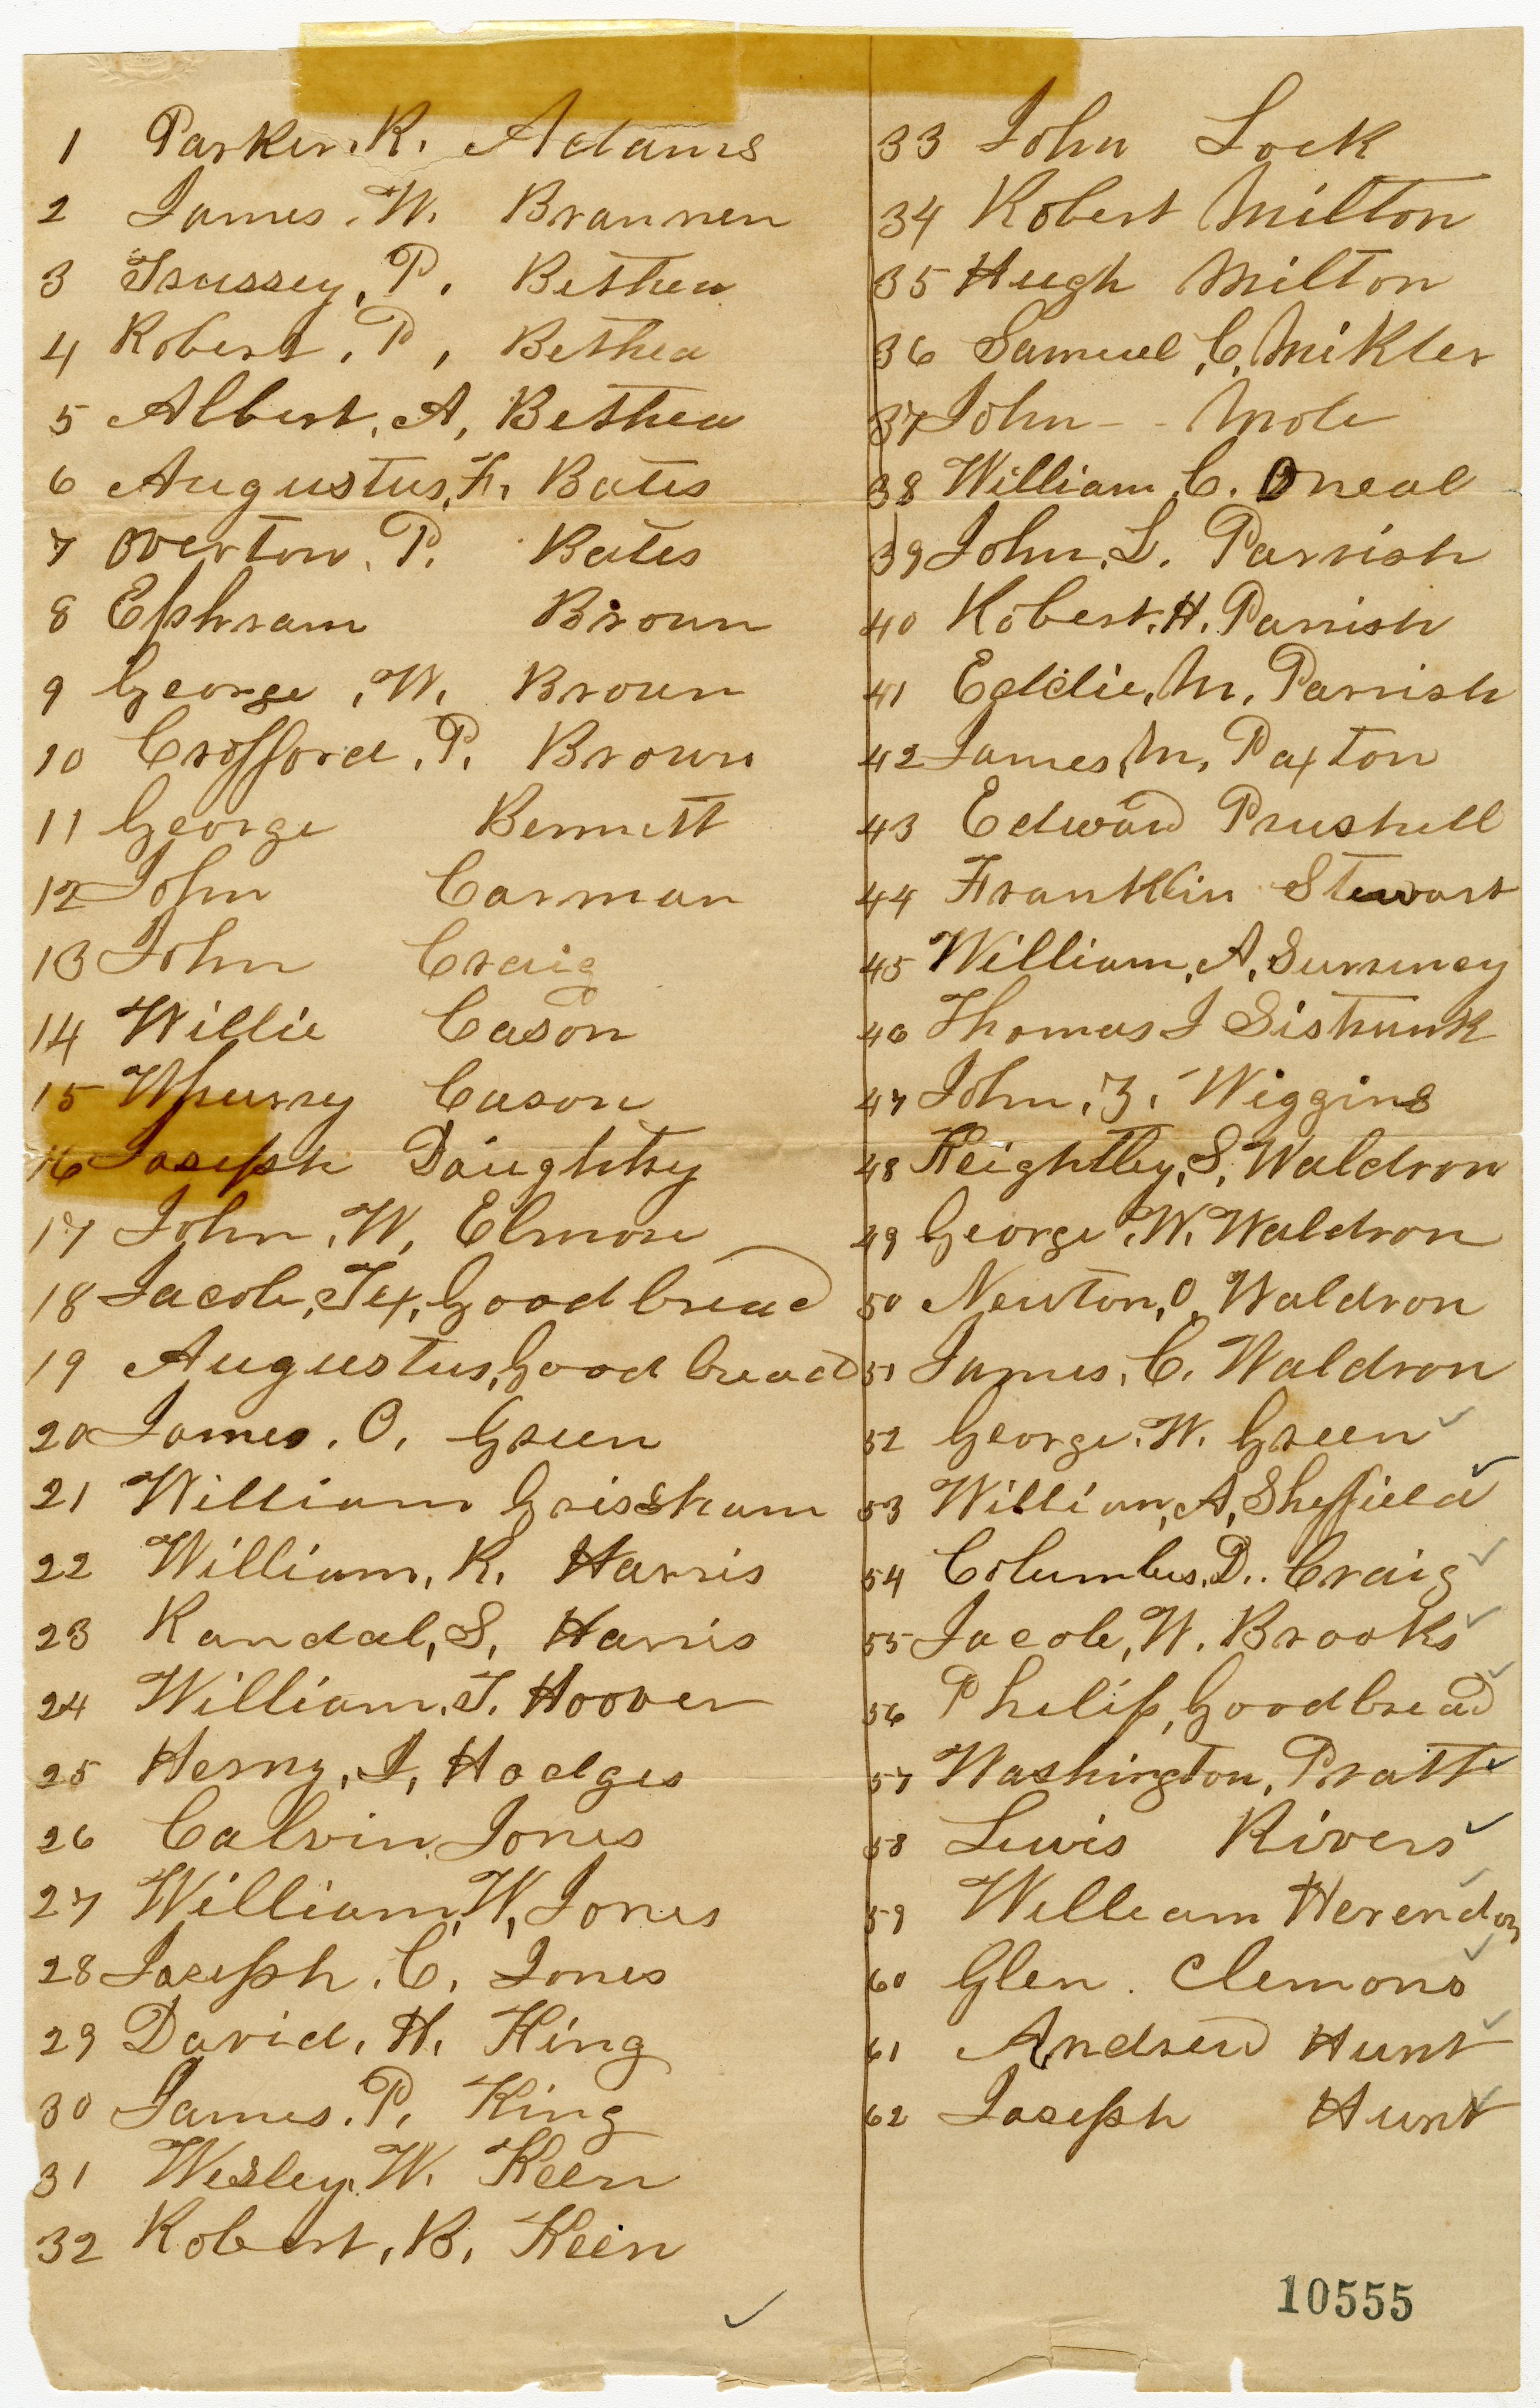 1 Parker. R. Adams
2 James. W. Brannen
3 P. Bethea
4 Robert. P, Bethea
5 Albert. A, Bethea
6 Augustus, F. Bates
7 Overton. P. Bates
8 Ephram Broun
9 George. W. Broun
10 Crofford. P. Brown
11 George Bennett
12 John Carman
13 John Craig
14 Willie Cason
15 Cason
16 Joseph Daughtry
17 John. W, Elmore
18 Jacob, Goodbread
19 Augustus, Goodbread
20 James. O. Green
21 William Grissham
22 William. R. Harris
23 Randal, S, Harris
24 William. T. Hoover
25 Henry, J, Hodges
26 Calvin Jones
27 William, W, Jones
28 Joseph. C, Jones
29 David. H. King
30 James. P. King
31 Wesley. W. Keen
32 Robert, B, Keen
33 John Lock
34 Robert Milton
35 Hugh Milton
36 Samuel, C, Mikler
37 John - - Mole
38 William, C. Oneal
39 John. L. Parrish
40 Robert. H. Parrish
41 Eddie, M, Parrish
42 James, M, Paxton
43 Edward
44 Franklin Stewart
45 William, A,
46 Thomas J Sistrunk
47 John. Z. Wiggins
48 Keightley, S, Waldron
49 George. W. Waldron
50 Newton, O, Waldron
51 James, C. Waldron
52 George. W. Green ✓
53 William, A, Sheffield ✓
54 Columbus. D.. Craig ✓
55 Jacob, W. Brooks ✓
56 Philip, Goodbread ✓
57 Washington, Pratt ✓
58 Lewis Rivers ✓
59 William Herendon ✓
60 Glen. Clemons ✓
61 Andrew Hunt ✓
62 Joseph Hunt ✓
✓
10555